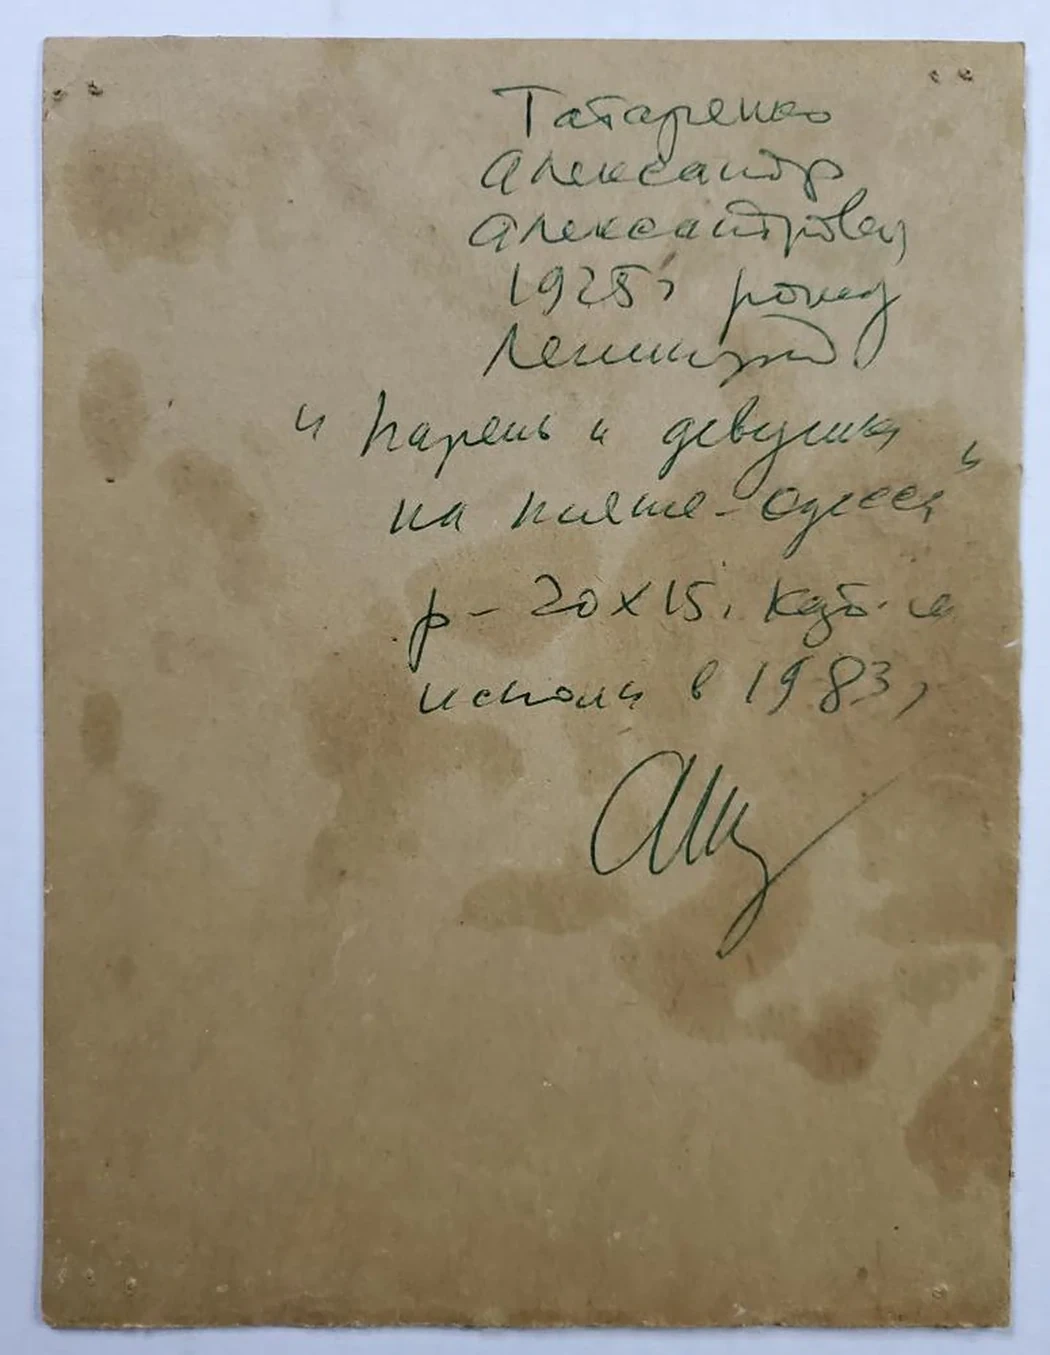 Татаренко
Александр
Александрович
1925г рожд
Ленинград
"Парень и девушка
на пляже - Одесса"
р - 20х15. карт. м
исполн в 1983,